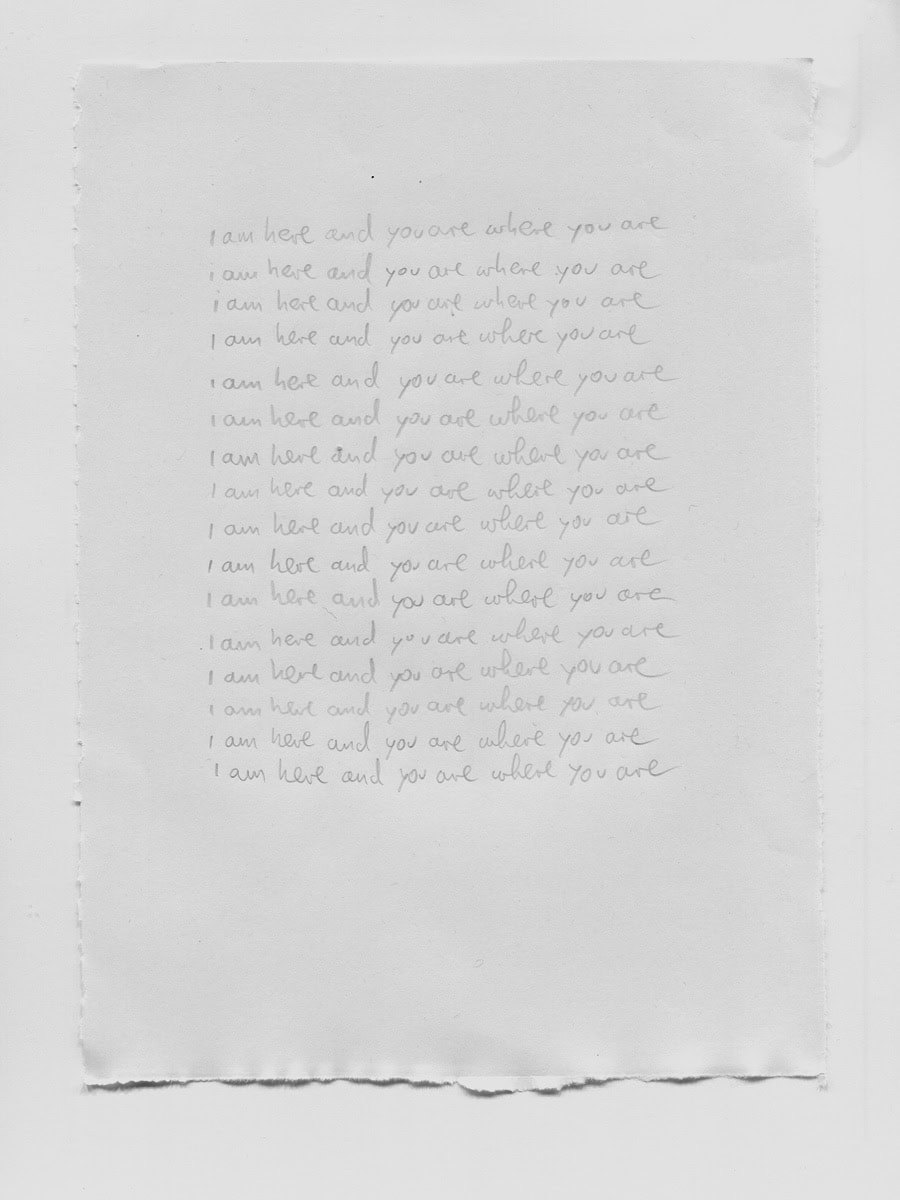 I am here and you are where you are
i am here and you are where you are
i am here and you are where you are
I am here and you are where you are
I am here and you are where you are
I am here and you are where you are
I am here and you are where you are
I am here and you are where you are
I am here and you are where you are
I am here and you are where you are
I am here and you are where you are
I am here and you are where you are
I am here and you are where you are
I am here and you are where you are
I am here and you are where you are
I am here and you are where you are